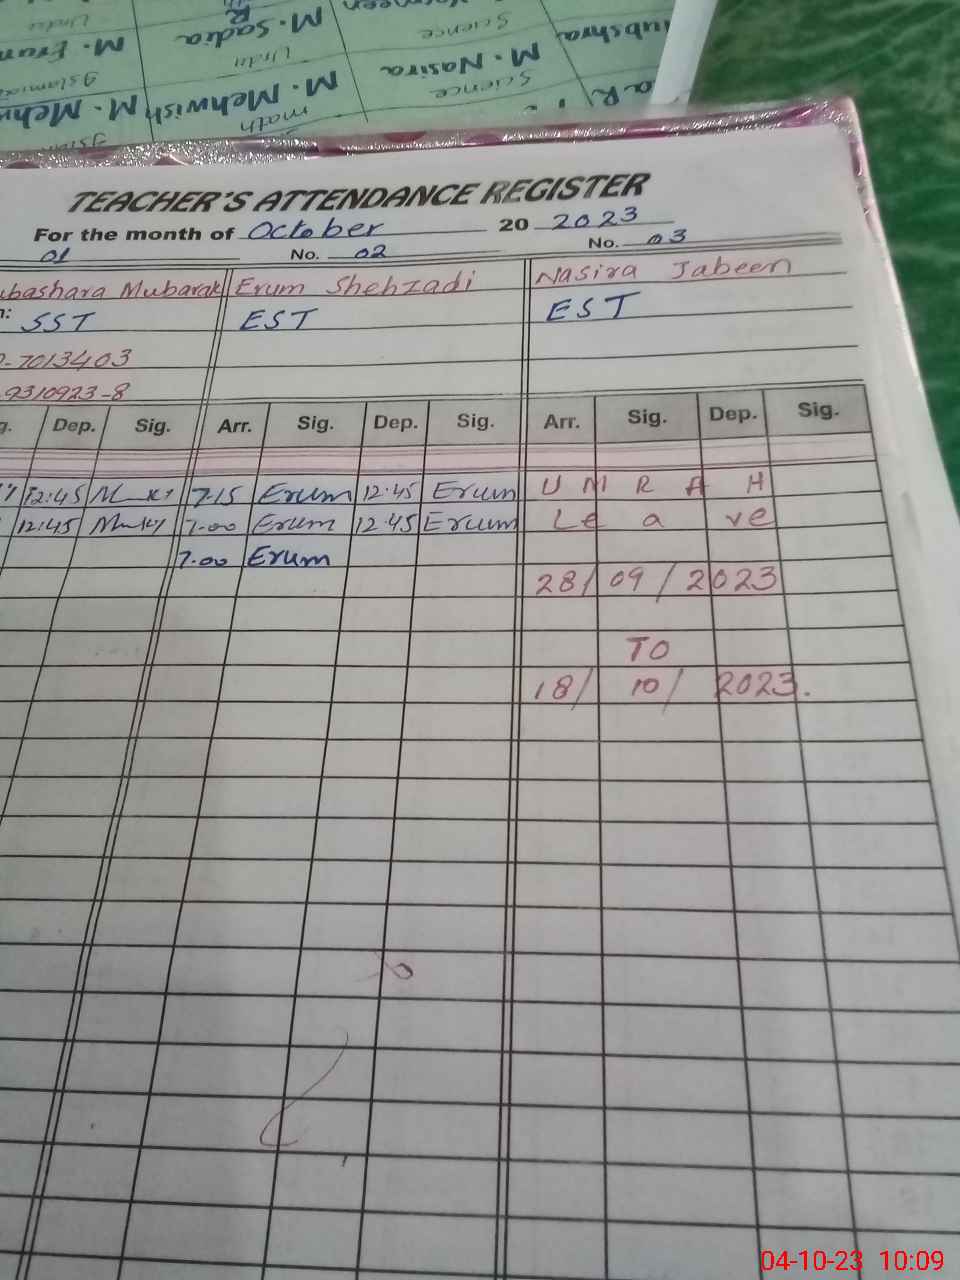 M. Erum
Urdu
M. Sadia
Urdu
Science
M. Mehwish
math
M. Nasira
Science
TEACHER'S ATTENDANCE REGISTER
For the month of October 20 2023
01 No. 02 No. 03
Mubarak Erum Shehzadi Nasira Jabeen
SST EST EST
-7013403
9310923-8
Dep. Sig. Arr. Sig. Dep. Sig. Arr. Sig. Dep. Sig.
12:45 7.15 Erum 12.45 Erum U M R A H
12:45 7.00 Erum 12.45 Erum Le a ve
7.00 Erum
28/ 09 / 2023
TO
18/ 10/ 2023.
04-10-23 10:09